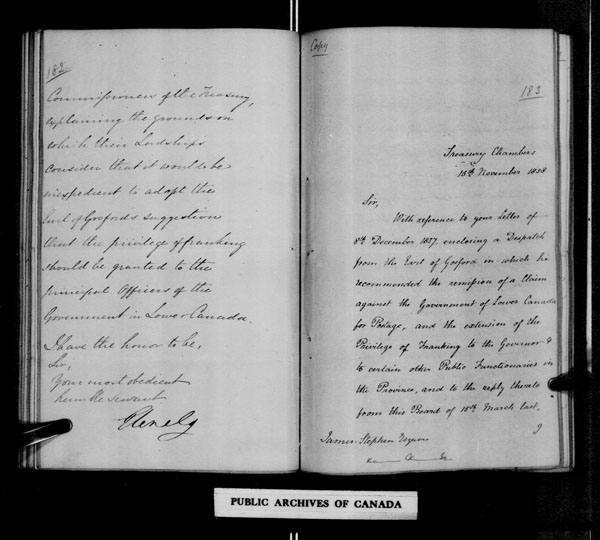 182
Commissioners of the Treasury,
explaining the grounds on
which their Lordships
consider that it would be
inexpedient to adopt the
Earl of Gosford's suggestion
that the privilege of franking
should be granted to the
principal Officers of the
Government in Lower Canada.
I have the honor to be,
Sir,
Your most obedient
humble servant
Glenelg
Copy
183
Treasury Chambers
15th November 1838
Sir,
With reference to your Letter of
8th December 1837, enclosing a Despatch
from the Earl of Gosford in which he
recommended the remission of a Claim
against the Government of Lower Canada
for Postage, and the extension of the
Privilege of Franking to the Governor &
to certain other Public Functionaries in
the Province, and to the reply thereto
from this Board of 15th March last,
I
James Stephen Esquire
&c &c &c
PUBLIC ARCHIVES OF CANADA